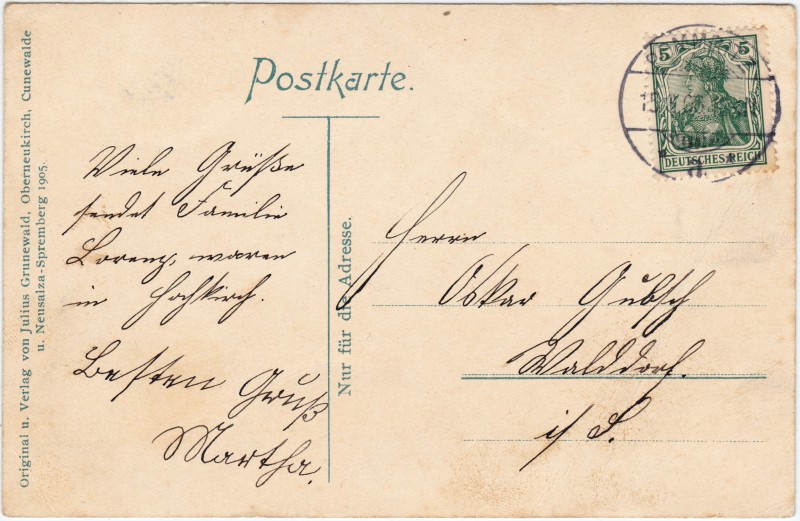 Postkarte.
Viele Grüße
sendet Familie
Lorenz, waren
in Hochkirch.
Besten Gruß
Martha.
Nur für die Adresse.
Herrn
Oskar Gubsch
Walddorf.
i/S.
5 5
DEUTSCHES REICH
Original u. Verlag von Julius Grunewald, Oberneukirch, Cunewalde
u. Neusalza-Spremberg 1905.